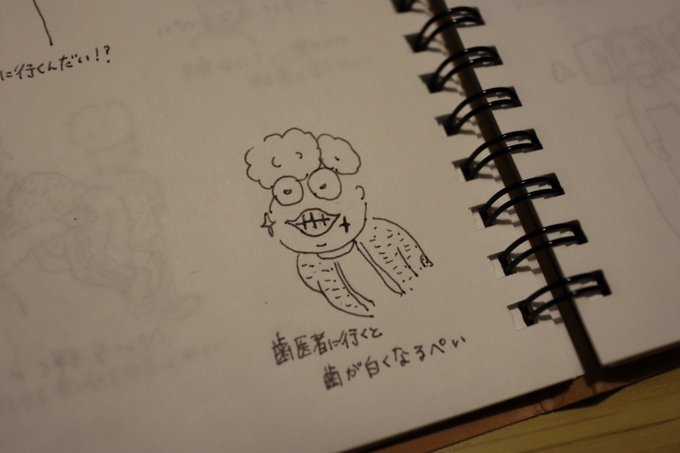 に行くんだい!?
歯医者に行くと
歯が白くなるぺい